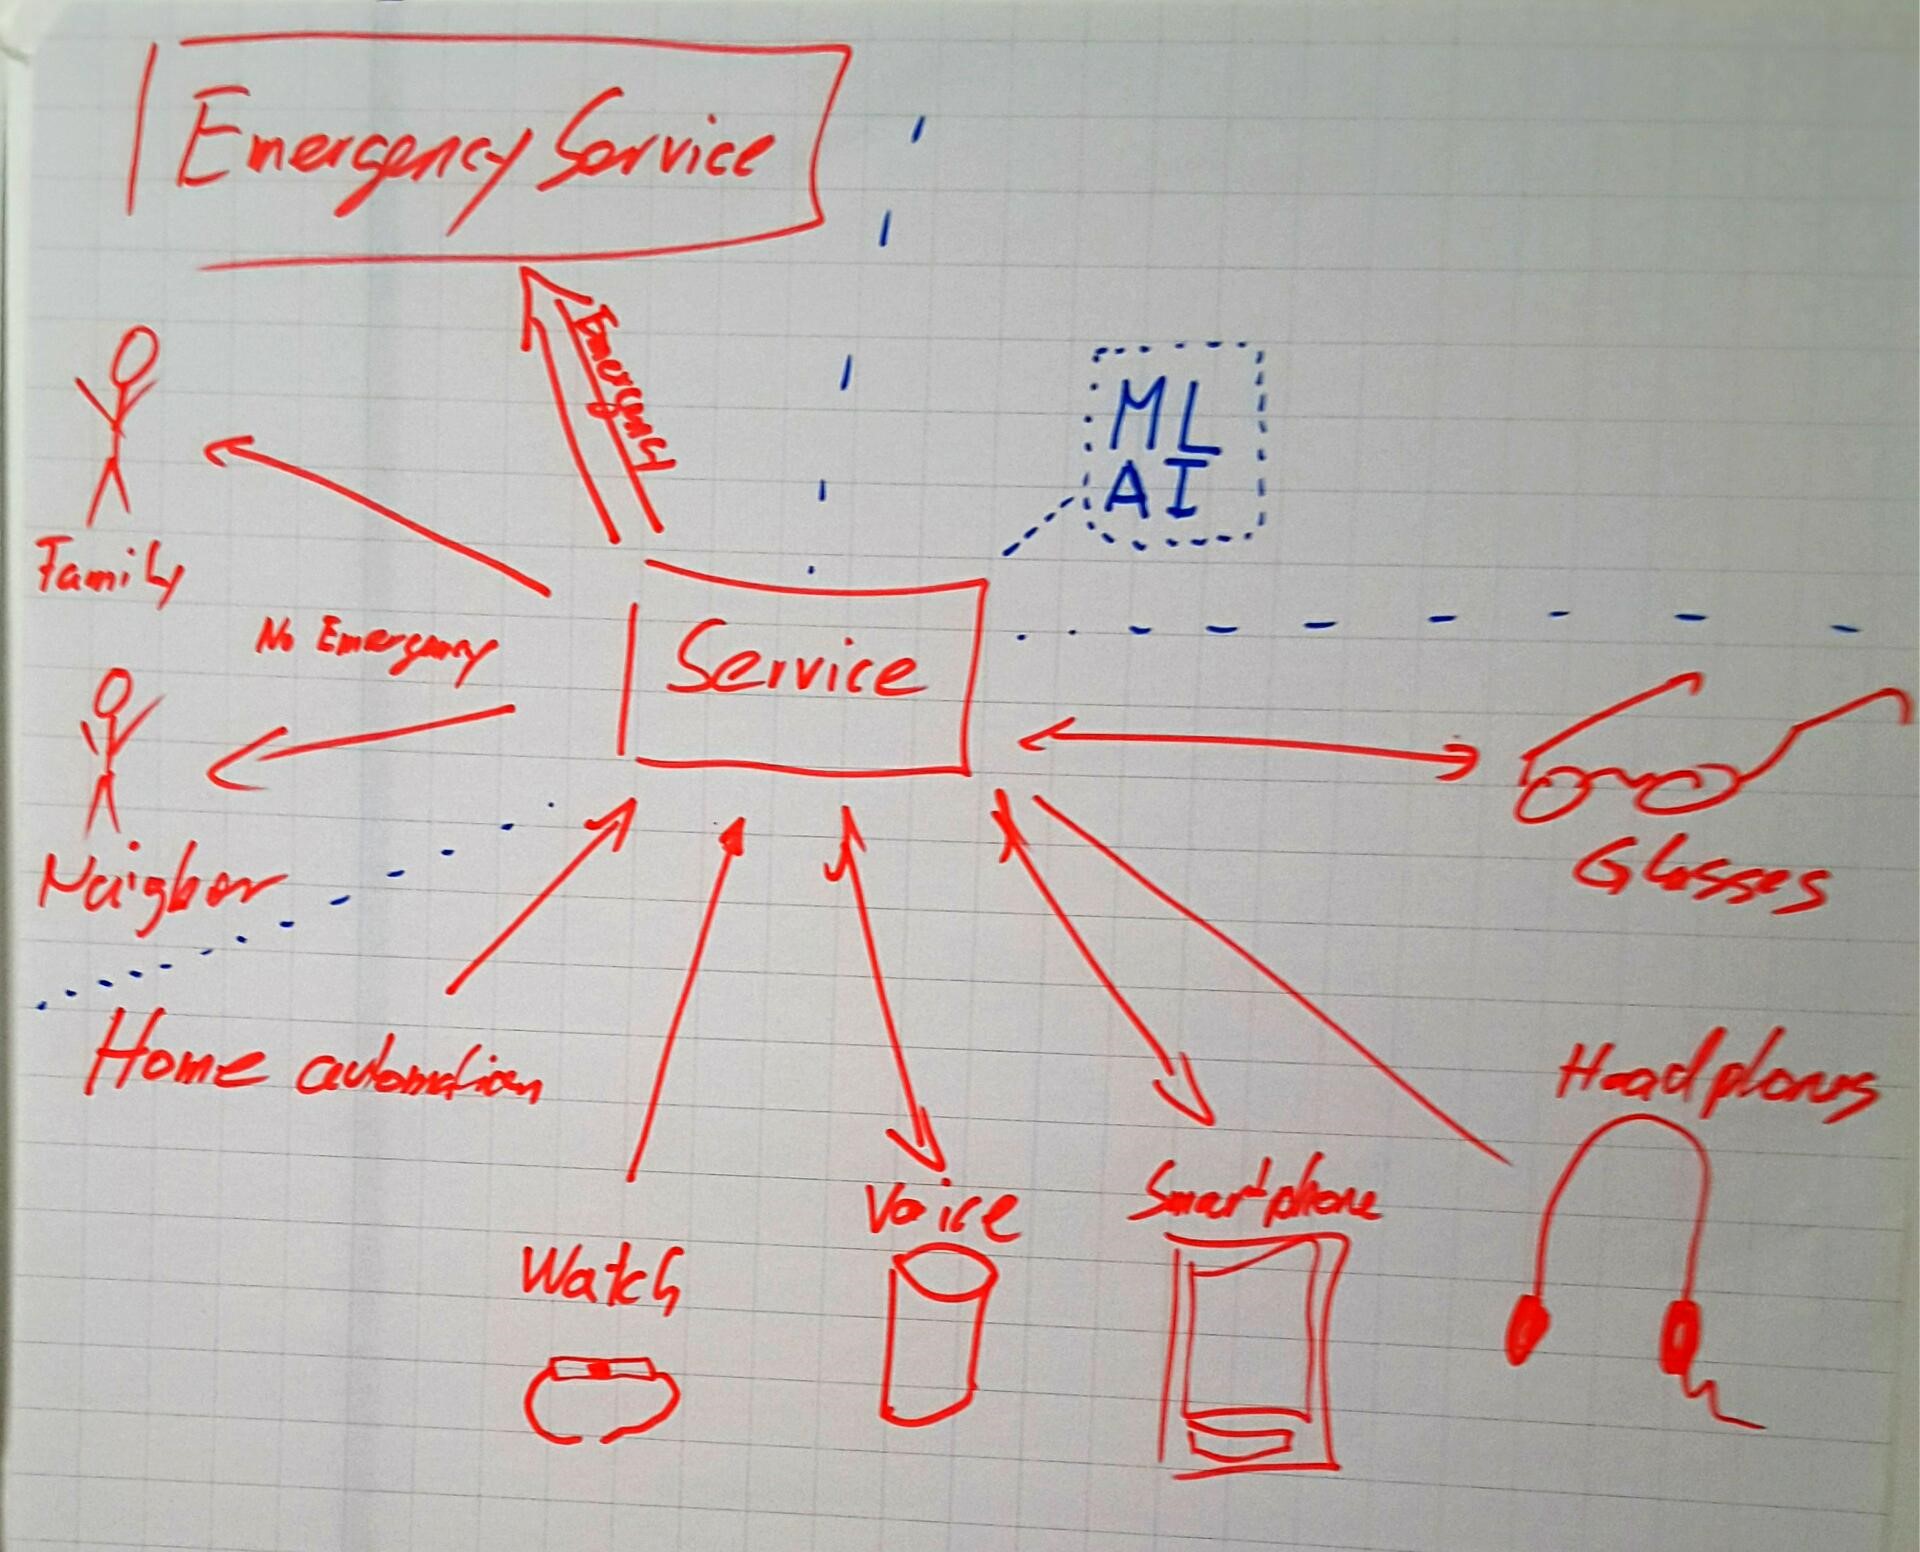 Emergency Service
Emergency
ML
AI
Family
No Emergency
Service
Neighbor
Glasses
Home automation
Headphones
Voice
Smartphone
Watch